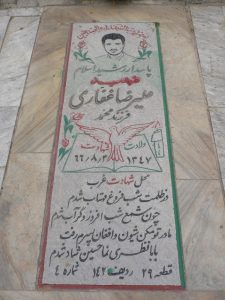 پاسدار رشید اسلام
شهید
علیرضا غفاری
فرزند محمد
ولادت
شهادت
۱۳۴۷
۶۶/۸/۳
محل شهادت غرب
در ظلمت شب فروغ مهتاب شدم
چون شمع شب افروز و گر آب شدم
مادر تو مکن شیون و افغان پسرم رفت
بابا نظری نما حسین شدم
قطعه ۲۹ ردیف ۱۴۲ شماره ۴